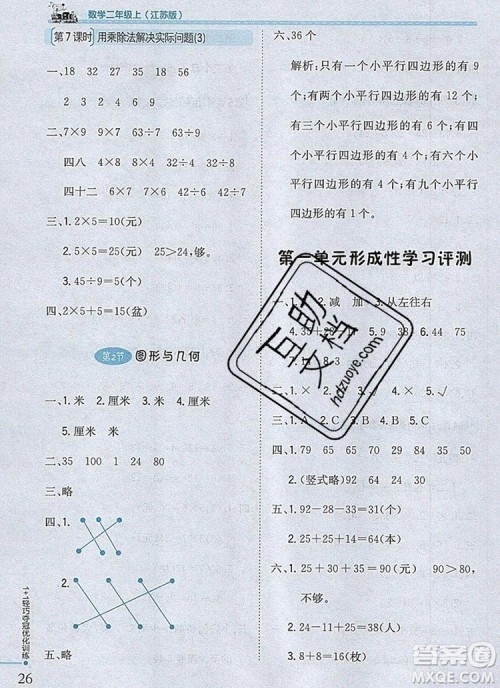 数学二年级上(江苏版)
第7课时 用乘除法解决实际问题(3)
一、18 32 27 35 18 56
3 2 4 9 6 7
二、7×9 9×7 63÷7 63÷9
四八 4×8 8×4 32÷4 32÷8
四十二 6×7 7×6 42÷6 42÷7
三、1. 2×5=10(元)
2. 5×5=25(元) 25>24,够。
3. 45÷9=5
四、2×5+5=15(盆)
第2节 图形与几何
一、1. 米 2. 厘米 3. 米 4. 厘米
5. 厘米 米
二、35 100 1 24 80
三、略
四、1.
2.
五、略
1+1轻巧夺冠优化训练
26
六、36个
解析:只有一个小平行四边形的有
9个;有两个小平行四边形的有12
个;有三个小平行四边形的有 6
个;有四个小平行四边形的有 4
个;有六个小平行四边形的有 4
个;有九个小平行四边形的有
1个。
第一单元形成性学习评测
一、1. 2. 减 加 3. 从左往右
4. 95 29 38 44 48 75
5. 14 8 3
二、1. × 2. 4. √
三、1. C A B
四、1. 83 100 16 30 24 83
2. (竖式略) 92 64 30 29
五、1. 92-28-33=31(个)
2. 25+25+14=64(本)
六、1. 25+30+35=90(人) 90>85
不够。
2. 24-11+25=38(人)
3. 8+8=16(枚)
互助文档
hdzuoye.com
答案圈
MXQE.COM